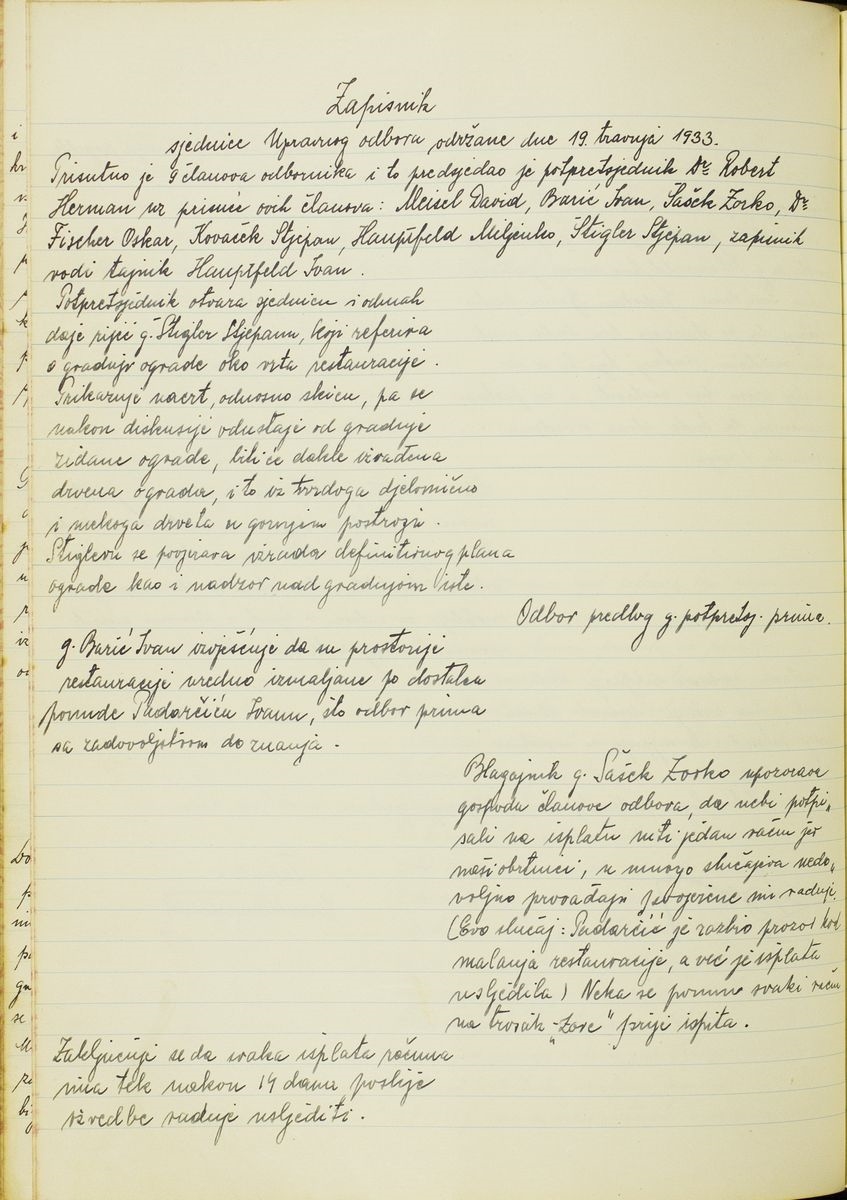 Zapisnik
sjednice Upravnog odbora održane dne 19. travnja 1933.
Prisutno je 9 članova odbornika i to predsjedao je potpretsjednik Dr. Robert
Herman uz prisuće ovih članova: Meisel David, Barić Ivan, Sašek Zorko, Dr.
Fischer Oskar, Kovaček Stjepan, Hauptfeld Miljenko, Štigler Stjepan, zapisnik
vodi tajnik Hauptfeld Ivan.
Potpretsjednik otvara sjednicu i odmah
daje riječ g. Štigler Stjepanu, koji referira
o gradnji ograde oko vrta restauracije.
Prikazuje nacrt, odnosno skicu, pa se
nakon diskusije odustaje od gradnje
zidane ograde, biti će dakle izrađena
drvena ograda, i to iz tvrdoga djelomično
i mekoga drveta u gornjim postroju.
Štigleru se povjerava izrada definitivnog plana
ograde kao i nadzor nad gradnjom iste.
Odbor predlog g. potpretsj. prima.
g. Barić Ivan izvješćuje da su prostorije
restauracije uredno izmaljane po dostalcu
ponude Pudarčiću Ivanu, što odbor prima
sa zadovoljstvom do znanja.
Blagajnik g. Sašek Zorko upozorava
gospodu članove odbora, da nebi potpi„
sali na isplatu niti jedan račun jer
naši obrtnici, u mnogo slučajeva nedo„
voljno provađaju povjerene im radnje.
(Evo slučaj: Pudarčić je razbio prozor kod
malanja restauracije, a već je isplata
usljedila) Neka se pomno svaki račun
na trošak „Zore" prije ispita.
Zaključuje se da svaka isplata računa
ima tek nakon 14 dana poslije
izvedbe radnje usljediti.